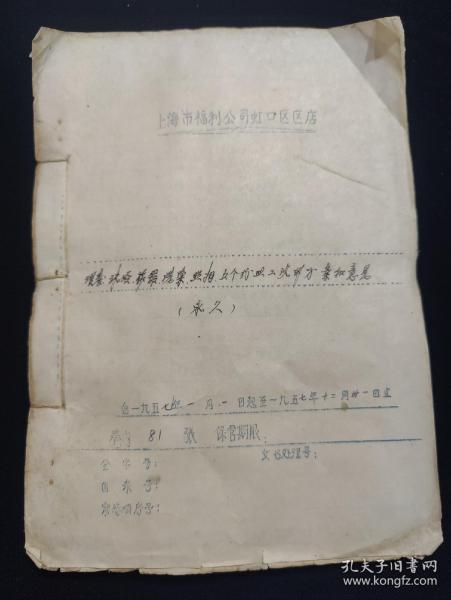 上海市福利公司虹口区区店
理发 沐浴 旅馆 洗染 照相 五个行业工资改革方案和意见
(永久)
自一九五七年一月一日起至一九五七年十二月卅一日止
卷宗 81 张 保管期限:
全宗号: 文书处理号:
目录号:
案卷顺序号:
孔夫子旧书网
www.kongfz.com